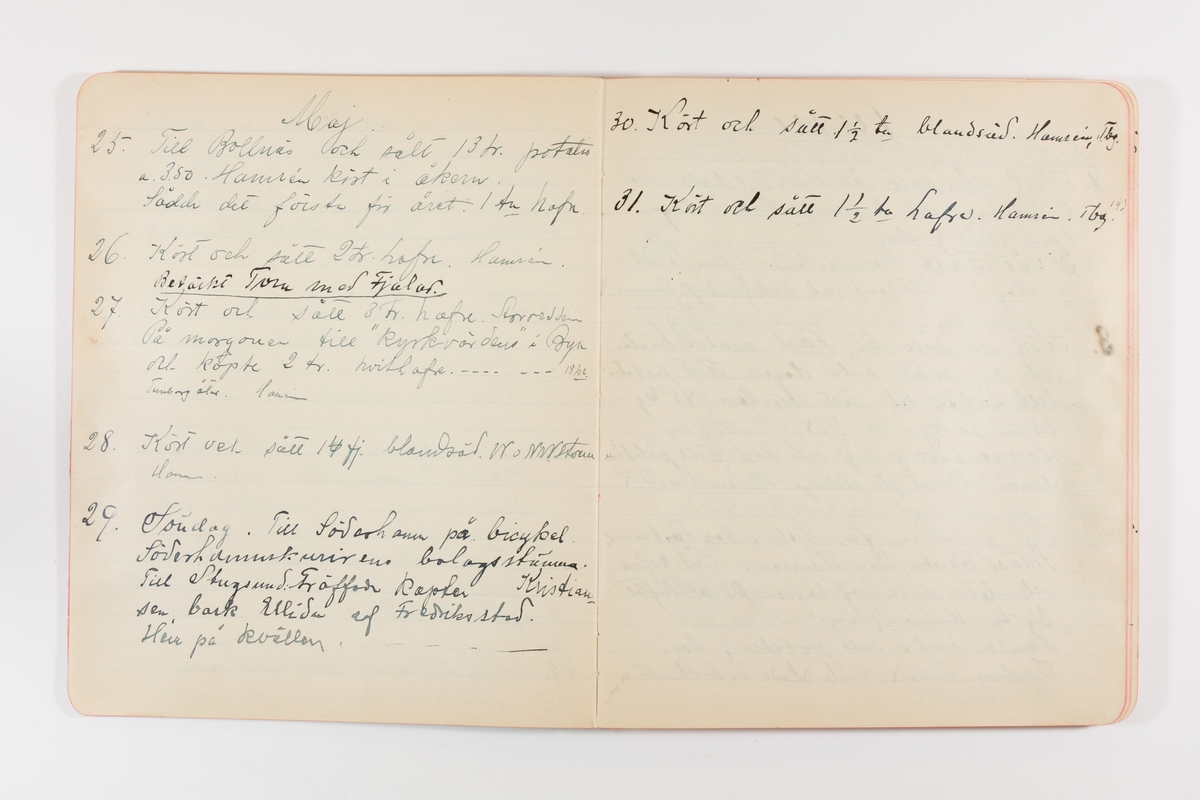 Maj.
25. Till Bollnäs och sålt 13 tr. potatis
a. 3.50. Hamrén kört i åkern.
Sådde det första för året. 1 tn hafre.
26. Kört och sått 2 tr. hafre. Hamrén.
Besäckt Tora med Fjalar.
27. Kört och sått 3 tr. hafre.
På morgonen till "kyrkvärdens" i Byn
och köpte 2 tr. hvithafre. ---- --- 18 kr.
Hamrén
28. Kört och sått 14 fj. blandsäd. W. o
Hamr.
29. Söndag. Till Söderhamn på bicykel.
Söderhamnskurirens bolagsstämma.
Till Stugsund. Träffade kapten Kristian-
sen bark Ellida af Fredriksstad.
Hem på kvällen. - - - —
30. Kört och sått 1½ tn blandsäd. Hamrén, Tbg.
31. Kört och sått 1½ tn hafre. Hamrén. Tbg.